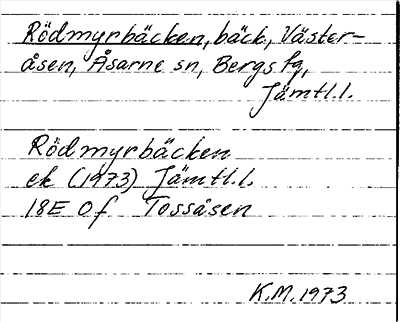 Rödmyrbäcken, bäck, Väster-
åsen, Åsarne sn, Bergs fg,
Jämtl.l.
Rödmyrbäcken
ek (1973) Jämtl.l.
18E 0f Tossåsen
K.M. 1973